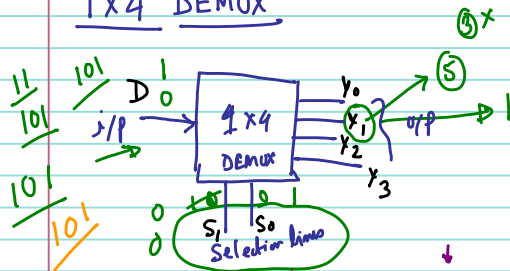 1X4 DEMUX
③ x
11
101
1
0
D
Y0
⑤
101
i/p
1x4
DEMUX
Y1
Y2
Y3
o/p
1
101
101
0
0
10
0 1
S1 S0
Selection lines